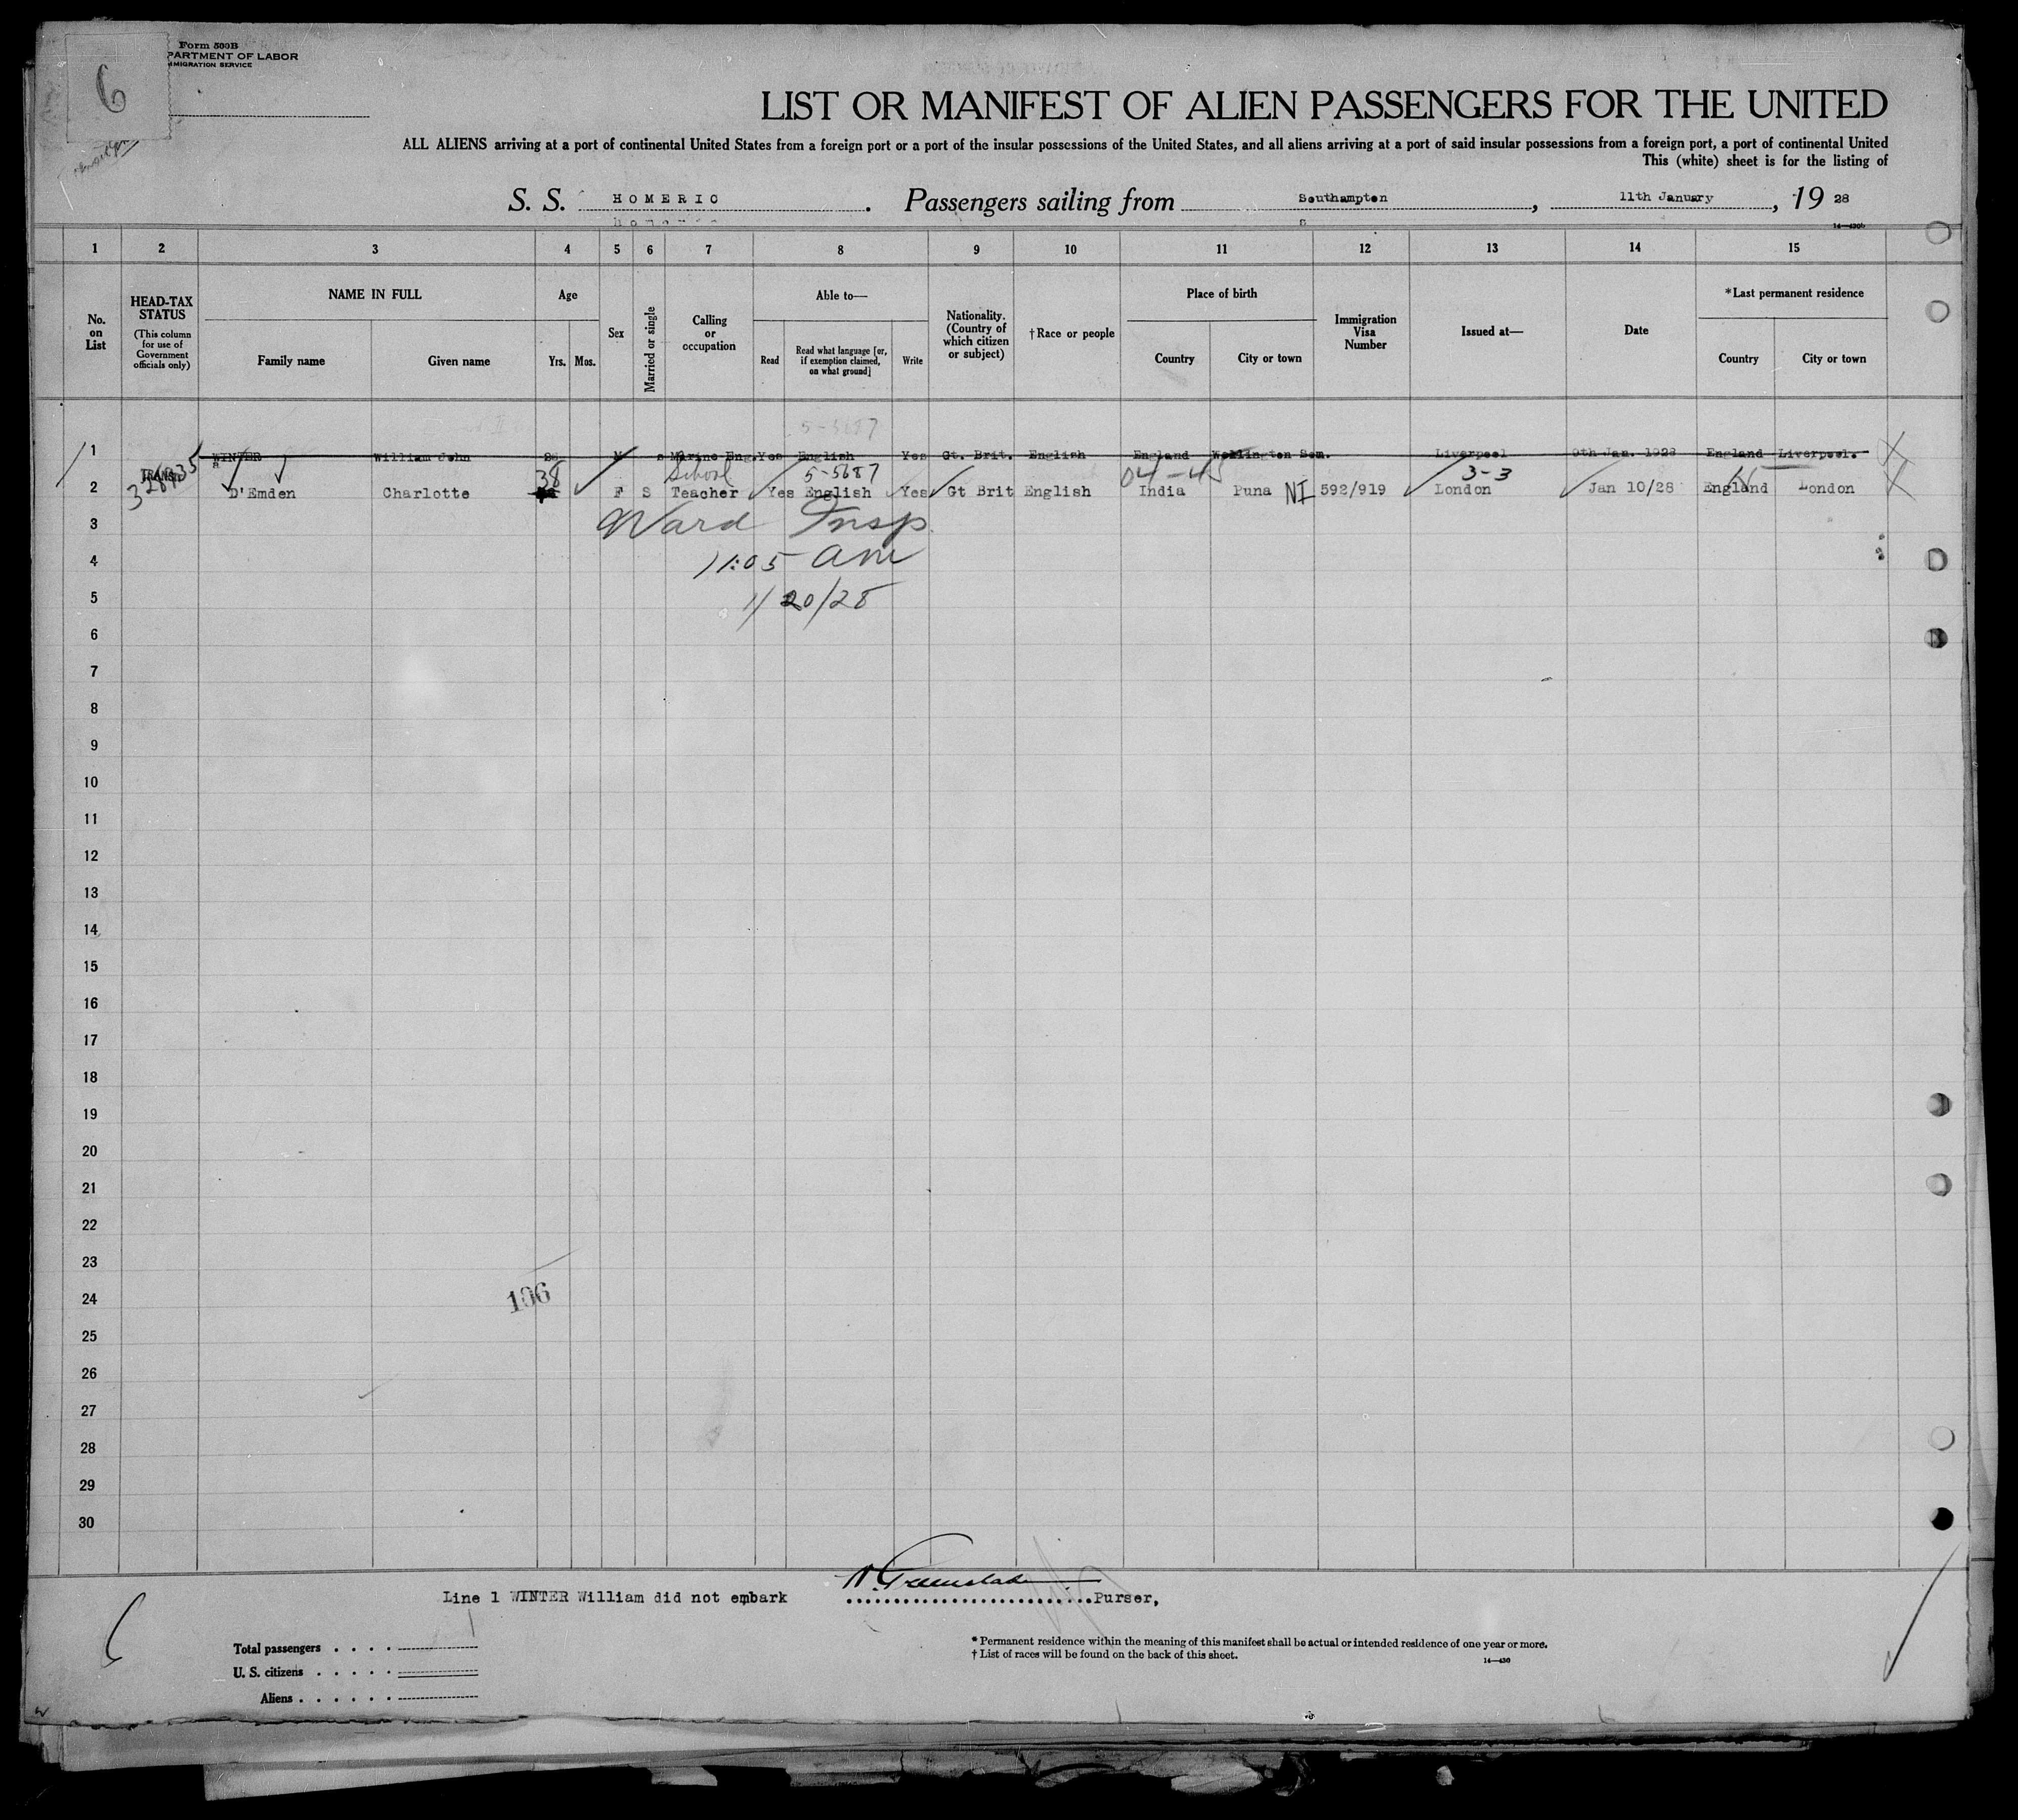 6
Form 500B
PARTMENT OF LABOR
MIGRATION SERVICE
LIST OR MANIFEST OF ALIEN PASSENGERS FOR THE UNITED
ALL ALIENS arriving at a port of continental United States from a foreign port or a port of the insular possessions of the United States, and all aliens arriving at a port of said insular possessions from a foreign port, a port of continental United
This (white) sheet is for the listing of
S. S. HOMERIC . Passengers sailing from Southampton , 11th January , 19 28
14—430b
1 2 3 4 5 6 7 8 9 10 11 12 13 14 15
No. on List
HEAD-TAX STATUS (This column for use of Government officials only)
NAME IN FULL
Family name Given name
Age
Yrs. Mos.
Sex
Married or single
Calling or occupation
Able to—
Read Read what language [or, if exemption claimed, on what ground] Write
Nationality. (Country of which citizen or subject)
†Race or people
Place of birth
Country City or town
Immigration Visa Number
Issued at—
Date
*Last permanent residence
Country City or town
5-5687
1 WINTER William John M s Marine Eng. Yes English Yes Gt. Brit. English England Wellington Som. Liverpool 9th Jan. 1928 England Liverpool.
38 School 5-5687 3-3
2 D'Emden Charlotte F S Teacher Yes English Yes Gt Brit English India Puna NI 592/919 London Jan 10/28 England London
3 Ward Insp.
4 11:05 am
5 1/20/28
6
7
8
9
10
11
12
13
14
15
16
17
18
19
20
21
22
23
24
106
25
26
27
28
29
30
Line 1 WINTER William did not embark Purser,
Total passengers . . . . 1
U. S. citizens . . . . .
Aliens . . . . . .
* Permanent residence within the meaning of this manifest shall be actual or intended residence of one year or more.
† List of races will be found on the back of this sheet.
14—430